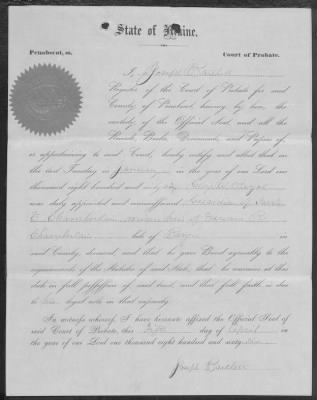 State of Maine.
Penobscot, ss. Court of Probate.
I, Joseph Bartlett
Register of the Court of Probate for said
County of Penobscot, having by law, the
custody of the Official Seal, and all the
Records, Books, Documents, and Papers of,
or appertaining to said Court, hereby certify and attest that on
the last Tuesday in January in the year of our Lord one
thousand eight hundred and sixty six
was duly appointed and commissioned Guardian of
E. Chamberlain minor heir of
Chamberlain late of Bangor in
said County, deceased, and that he gave Bond agreeably to the
requirements of the Statutes of said State, that he remains at this
date in full possession of said trust, and that full faith is due
to his legal acts in that capacity.
In witness whereof, I have hereunto affixed the Official Seal of
said Court of Probate, this Fifth day of April in
the year of our Lord one thousand eight hundred and sixty six
Joseph Bartlett